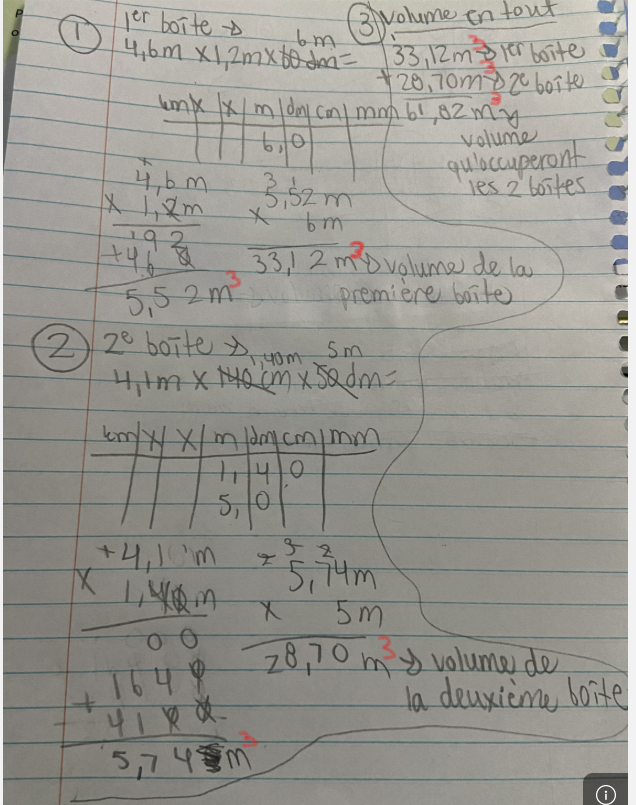 ① 1er boîte →
6m
4,6m x 1,2m x 60 dm =
km | x | x | m | dm | cm | mm
6, | 0
4,6 m
x 1,2m
192
+ 46 0
5,52 m³
3 1
5,52 m
x 6m
33,12 m³ → volume de la
première boîte
③ volume en tout
33,12m³ → 1er boîte
+ 28,70m³ → 2e boîte
61,82 m³ →
volume
qu'occuperont
les 2 boîtes
② 2e boîte →
1,40m 5m
4,1m x 140 cm x 50 dm =
km | x | x | m | dm | cm | mm
1, | 4 | 0
5, | 0
+ 4,1 m
x 1,40 m
00
1640
+ 4100
5,74 m³
3 2
5,74m
x 5m
28,70 m³ → volume de
la deuxième boîte